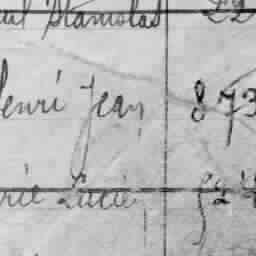 Stanislas 22
Henri Jean, 873
rie Lucie,